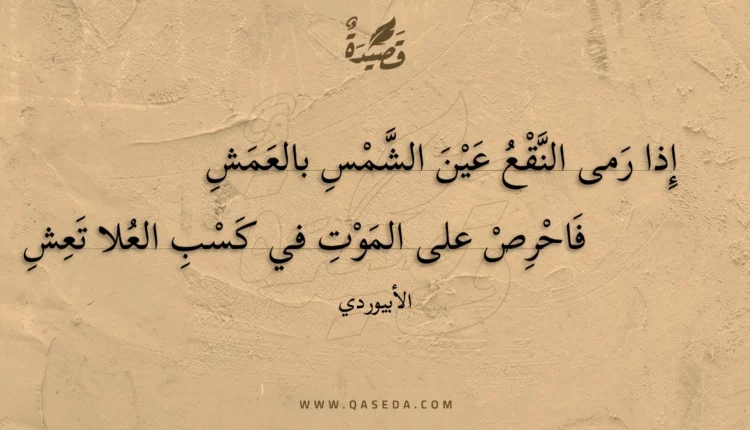 قَصِيْدَةٌ
إِذا رَمى النَّقْعُ عَيْنَ الشَّمْسِ بالعَمَشِ
فَاحْرِصْ على المَوْتِ في كَسْبِ العُلا تَعِشِ
الأبيوردي
WWW.QASEDA.COM